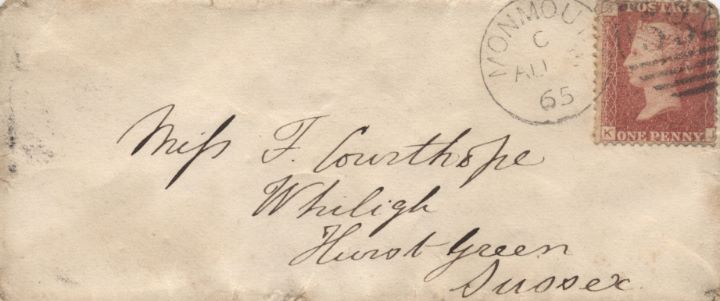 MONMOU
C
AU
65
POSTAGE
K J
ONE PENNY
Miss F. Courthope
Whiligh
Hurst Green
Sussex